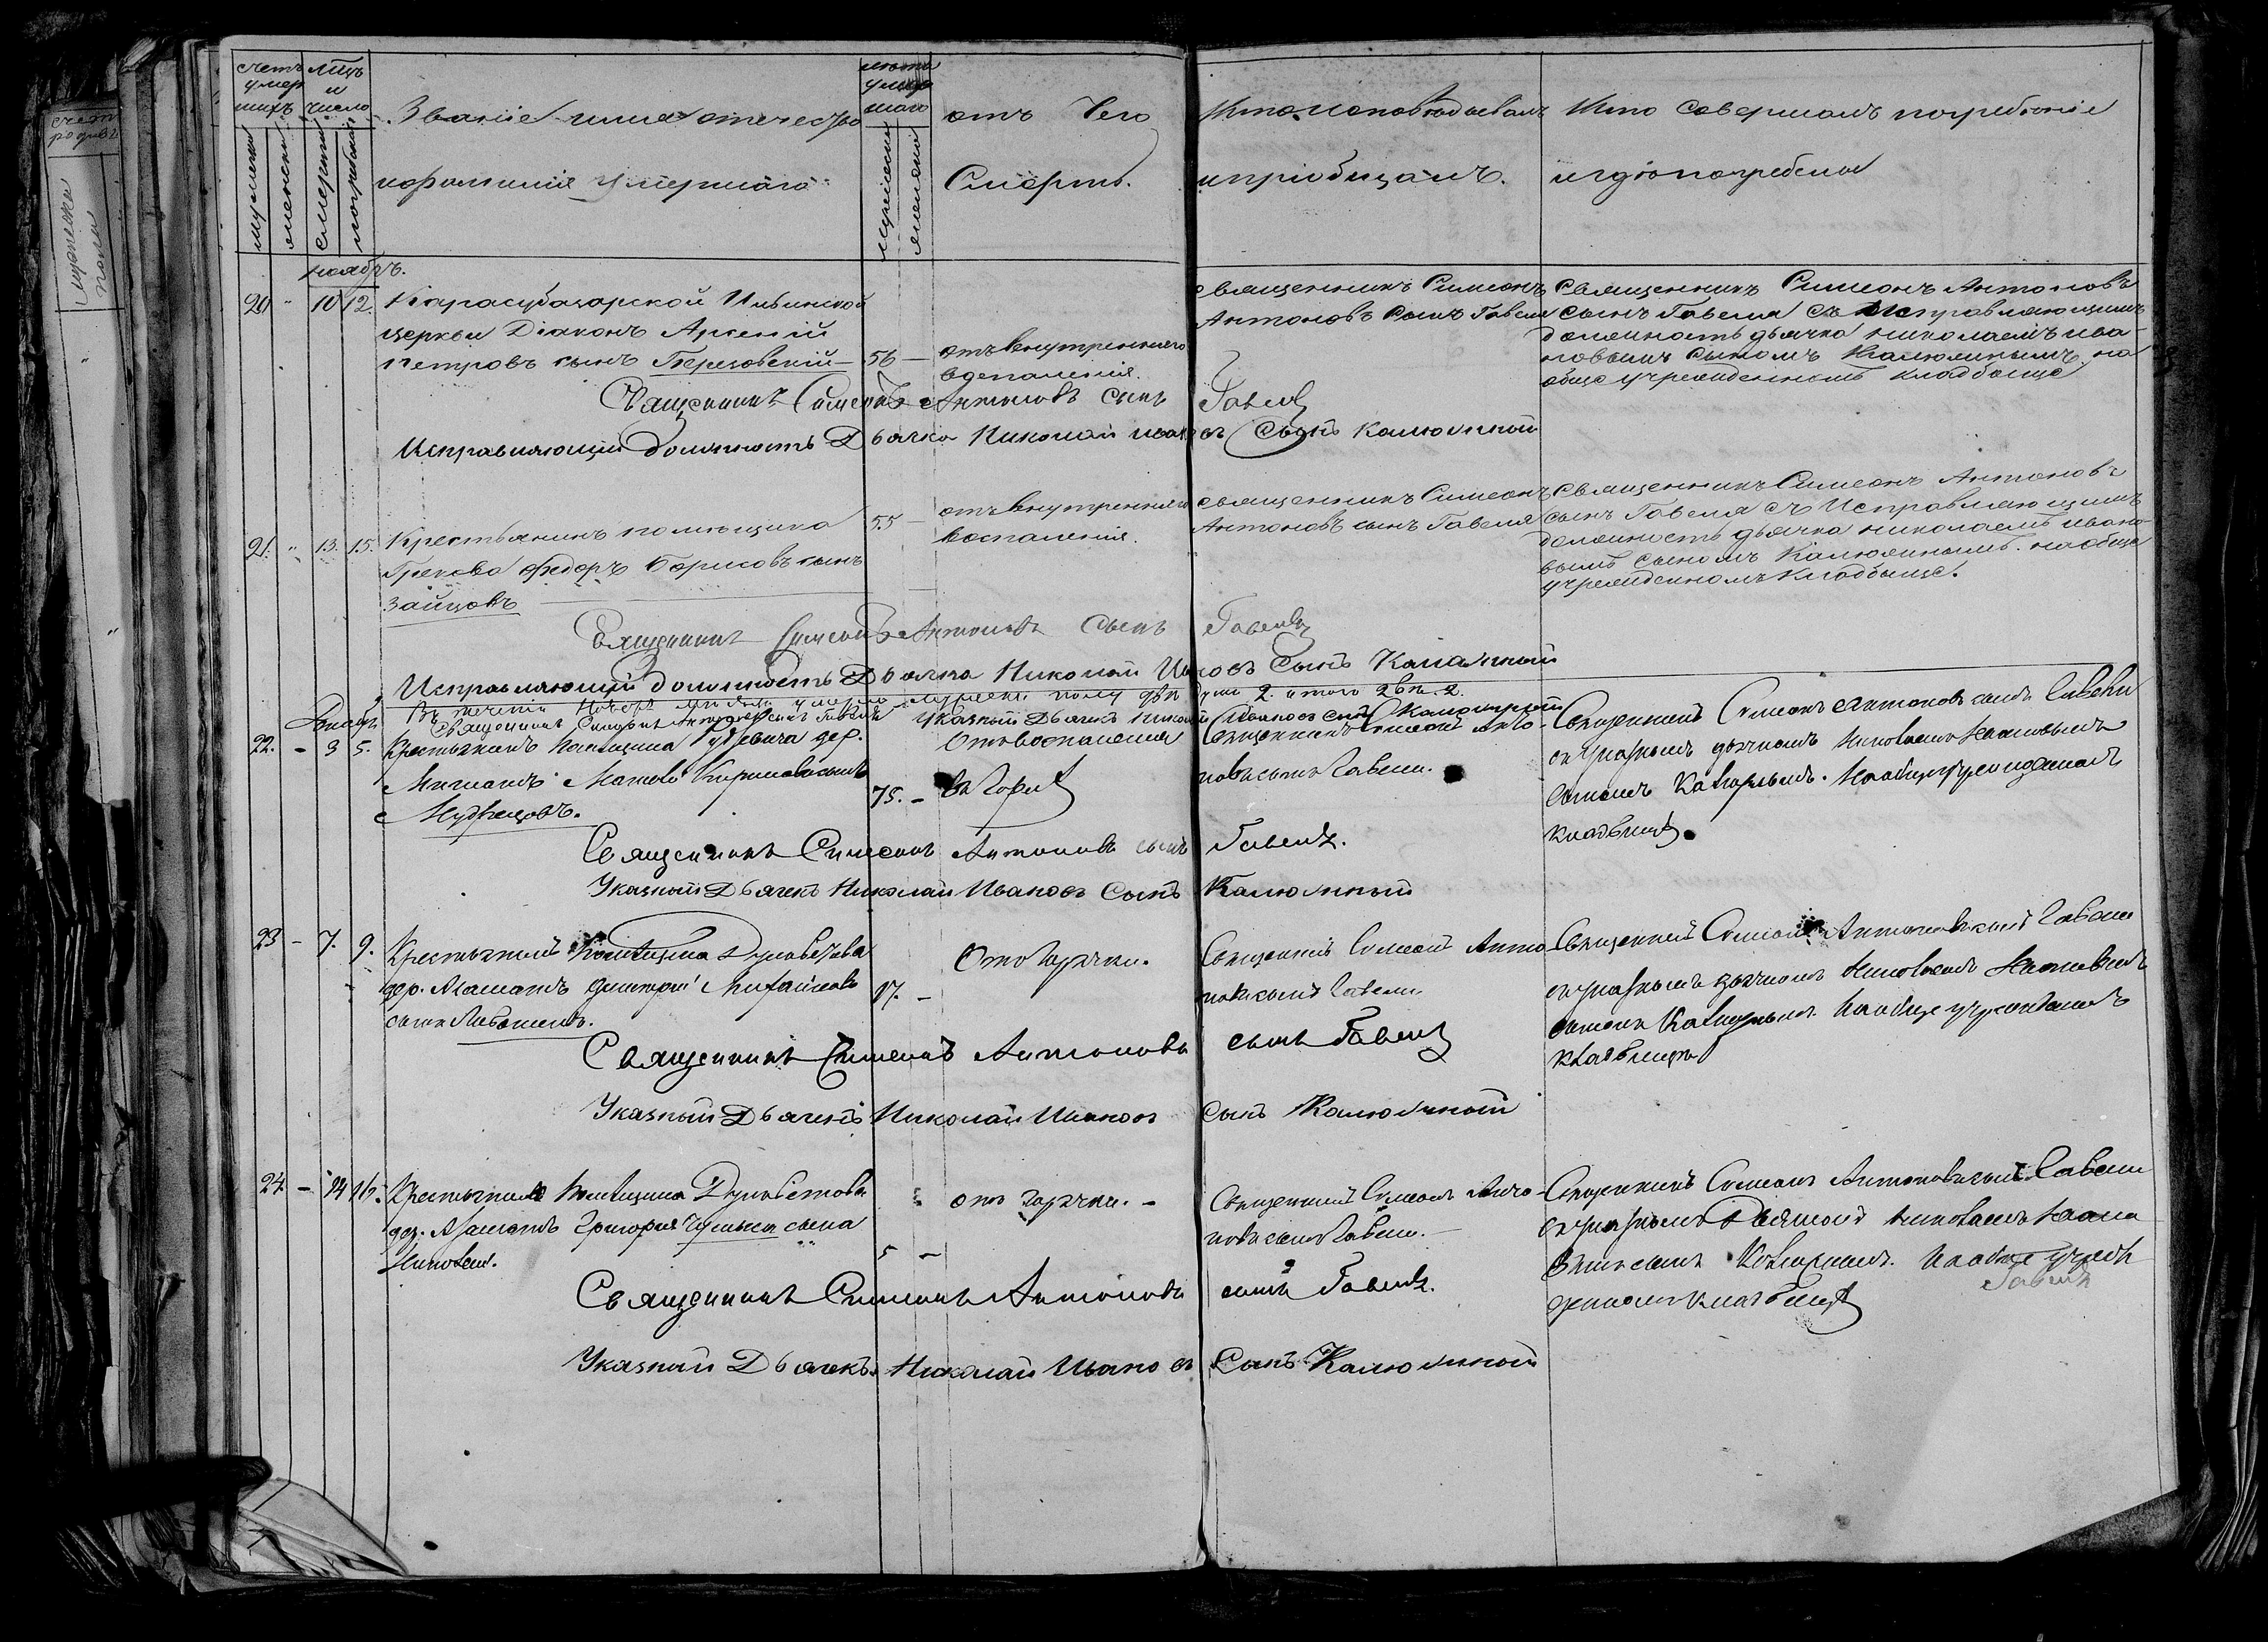 счетъ умершихъ
мѣсяцъ и число
Званіе имя отечество
и фамилія умершаго
лѣта умершаго
отъ чего
Смерть.
Кто исповѣдывалъ
и пріобщалъ.
Кто совершалъ погребеніе
и гдѣ погребены
мужескій
женскій
смерти
погребенія
мужескій
женскій
ноябрь.
20 " 10 12. Карасубазарской Ильинской
церкви Діаконъ Арсеній
Петровъ сынъ Березовскій — 56 —
отъ внутренняго
воспаленія.
священникъ Симеонъ
Антоновъ сынъ Гавеля
Священникъ Симеонъ Антоновъ
сынъ Гавеля съ Исправляющимъ
должность дьячка николаемъ ива-
новымъ сыномъ Калюжнымъ на
обще учрежденномъ кладбище
Священникъ Симеонъ Антоновъ сынъ Гавеля
Исправляющій должность Дьячка Николай Ивановъ Сынъ Калюжный
21. " 13. 15. Крестьянинъ помѣщика
Грекова Федоръ Борисовъ сынъ
Зайцовъ
55 —
отъ внутренняго
воспаленія.
священникъ Симеонъ
Антоновъ сынъ Гавеля
священникъ Симеонъ Антоновъ
сынъ Гавеля съ Исправляющимъ
должность дьячка николаемъ ивано
вымъ сыномъ Калюжнымъ. на обще
учрежденномъ Кладбище.
Священникъ Симеонъ Антоновъ Сынъ Гавеля
Исправляющій должность Дьячка Николай Ивановъ Сынъ Калюжный
умерло мужеска полу 2. итого 2.
Священникъ Симеонъ Антоновъ Сынъ Гавеля Указный Дьячекъ Николай Ивановъ сынъ Калюжный
Декабрь
22. - 3 5. Крестьянинъ помещика дер.
Матвей Кириловъ сынъ
Мудрецовъ.
75. -
Отъ воспаленія
въ горлѣ
Священникъ Симеонъ Анто-
новъ сынъ Гавели.
Священникъ Симеонъ Антоновъ сынъ Гавели
съ указнымъ дьячкомъ Николаемъ Ивановымъ
сыномъ На обще учрежденномъ
кладбищѣ.
Священникъ Симеонъ Антоновъ сынъ Гавеля.
Указный Дьячекъ Николай Ивановъ Сынъ Калюжный
23 - 7. 9. Крестьянинъ помѣщика
дер. Дмитрій Михайловъ
сынъ
17. -
Отъ горячки.
Священникъ Симеонъ Анто-
новъ сынъ Гавели.
Священникъ Симеонъ Антоновъ сынъ Гавели
съ указнымъ дьячкомъ Николаемъ Ивановымъ
сыномъ На обще учрежденномъ
кладбищѣ
Священникъ Симеонъ Антоновъ сынъ Гавеля
Указный Дьячекъ Николай Ивановъ Сынъ Калюжный
24 - 14 16. Крестьянина помѣщика
дер. Григорія сына
Николай.
5 -
отъ горячки. -
Священникъ Симеонъ Анто-
новъ сынъ Гавели.
Священникъ Симеонъ Антоновъ сынъ Гавели
съ указнымъ Дьячкомъ Николаемъ Ивано
вымъ сыномъ На обще учреж
денномъ кладбищѣ
Гавеля
Священникъ Симеонъ Антоновъ сынъ Гавеля.
Указный Дьячекъ Николай Ивановъ Сынъ Калюжный